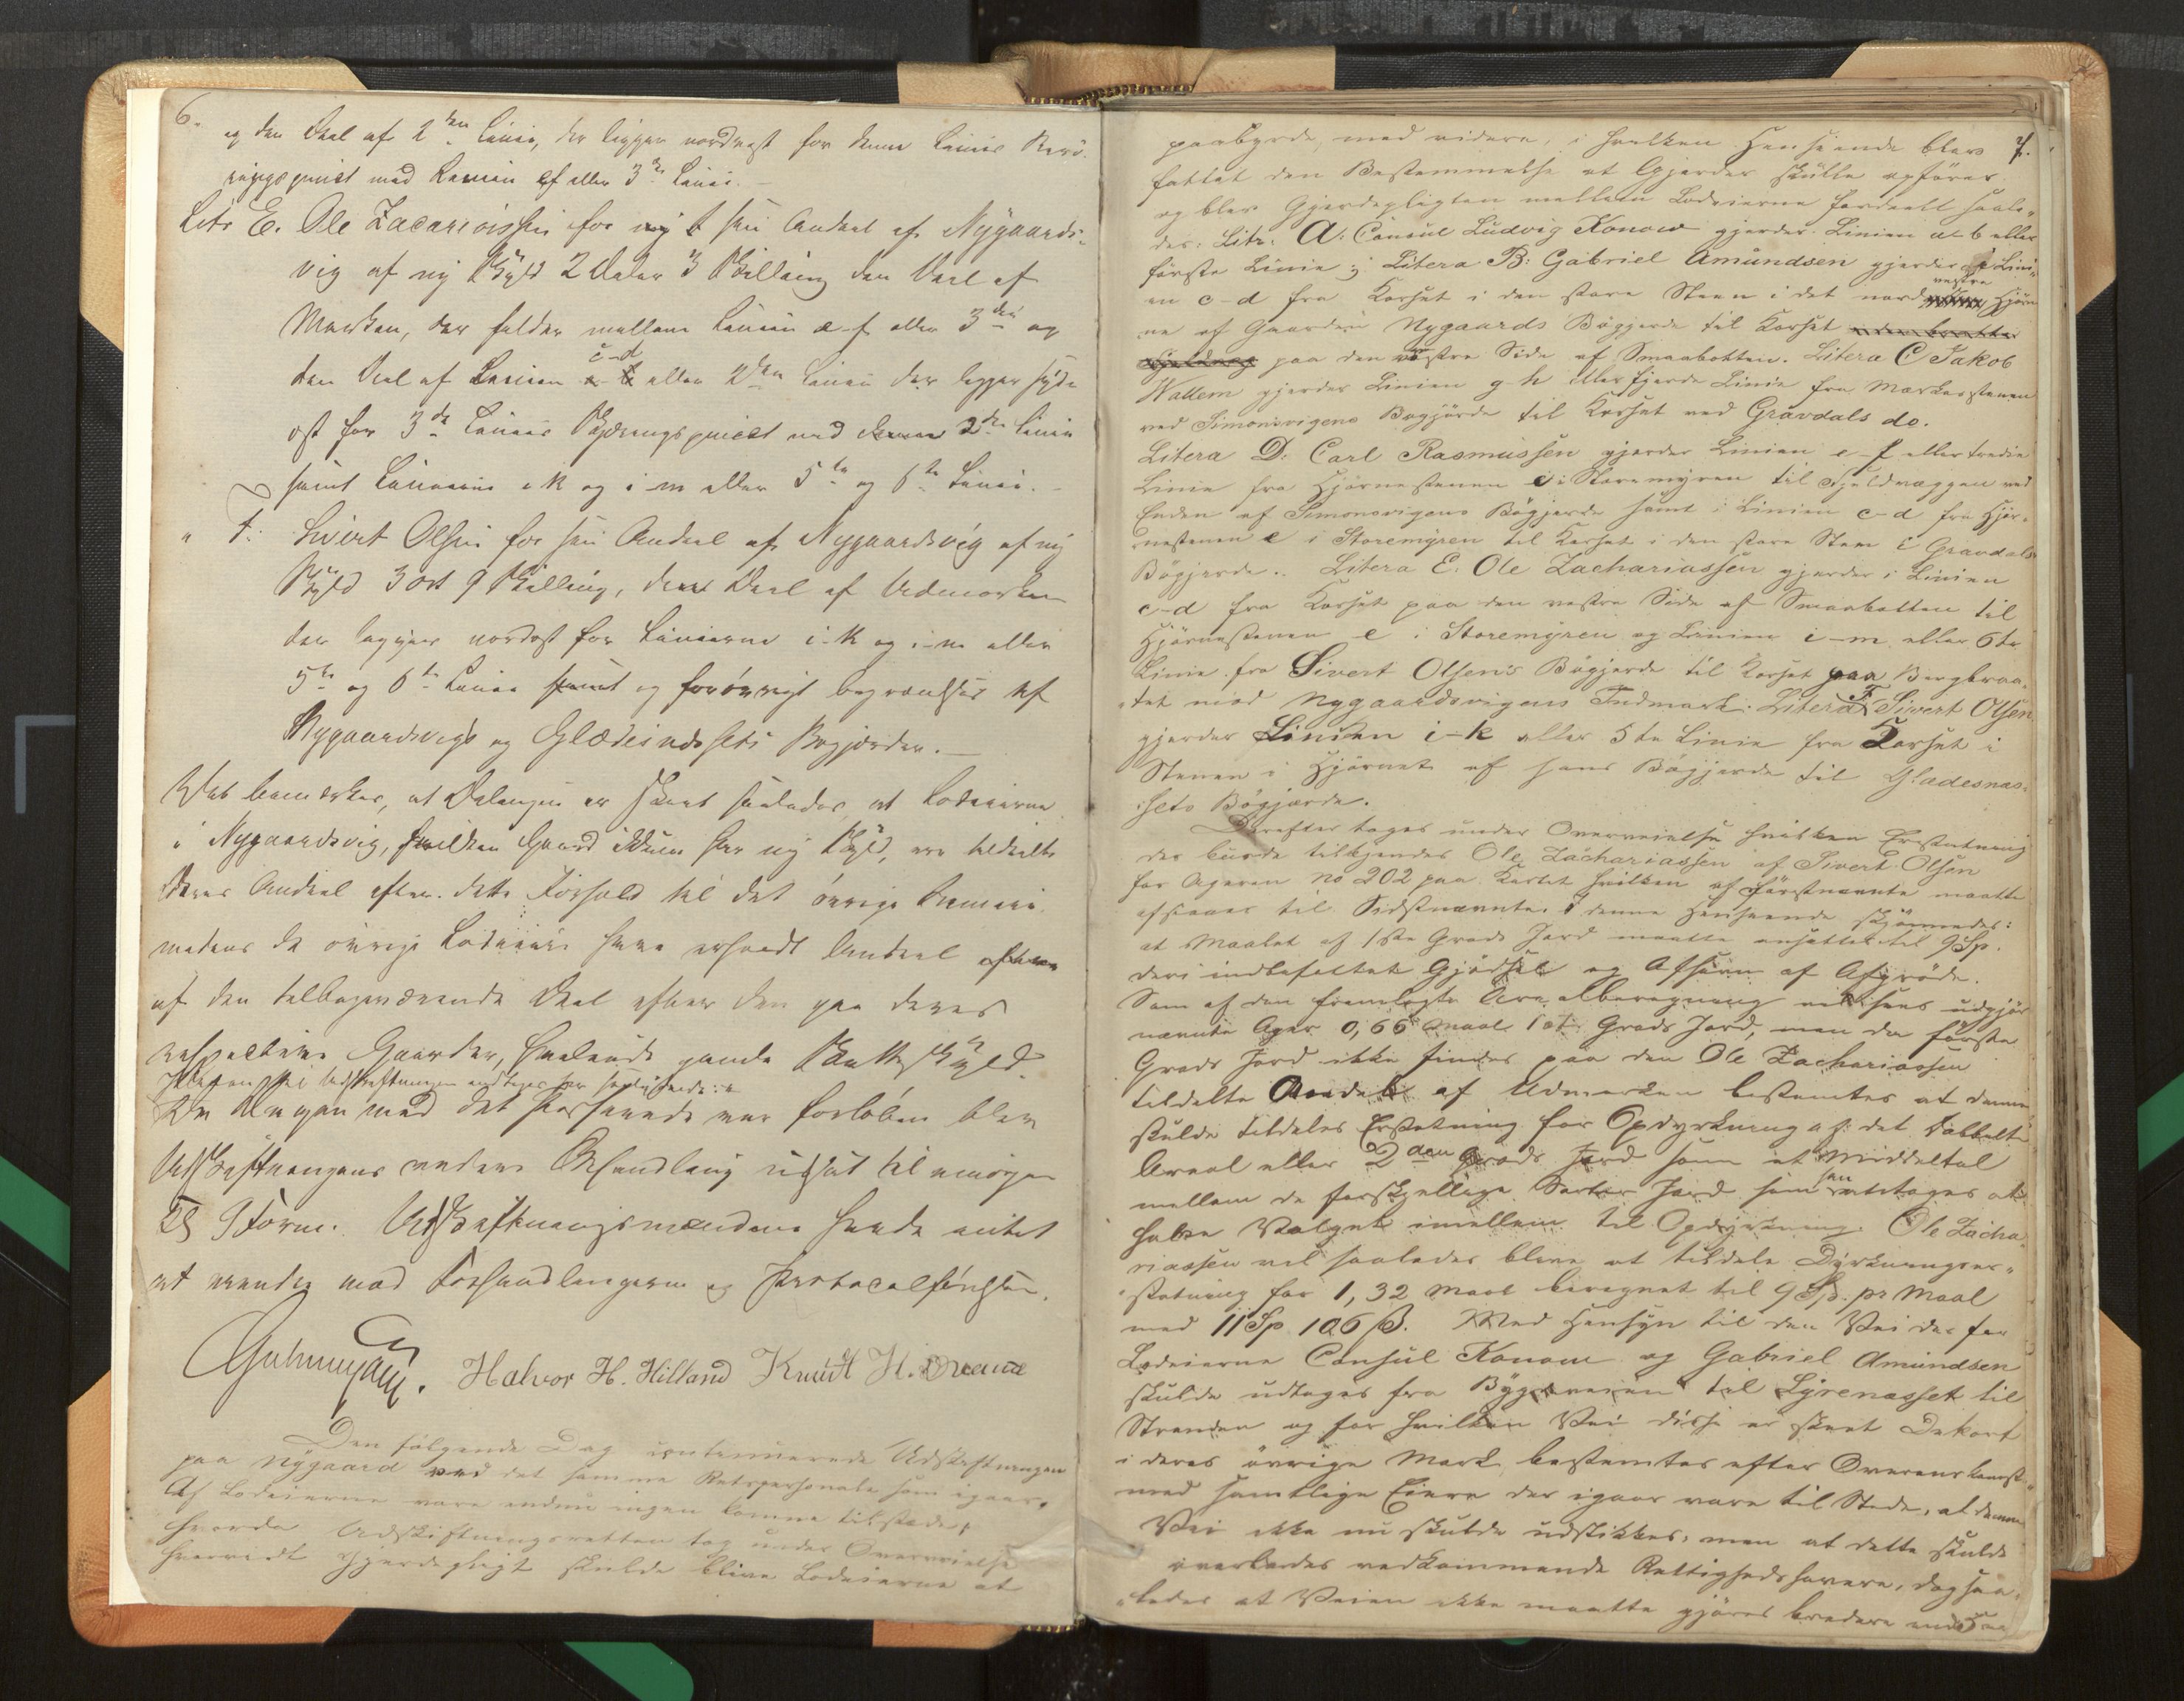 6.
og den Deel af 2den Linie, der ligger nordvest for denne Linies Berö-
ringspunct med Linien ef eller 3die Linie.
Litr E. Ole Zacariassen for sin Andeel af Nygaards-
vig af ny Skyld 2 Daler 3 Skilling den Deel af
Marken, der falder mellem Linien e-f eller 3die og
den Deel af Linien c-d eller 2den Linie der ligger syd-
ost for 3die Linies Skjæringspunct med denne 2den Linie
samt Linierne i k og i-m eller 5te og 6te Linie.
" F: Sivert Olsen for sin Andeel af Nygaardsvig af ny
Skyld 3 Ort 9 Skilling, den Deel af Udmarken
der ligger nordost for Linierne i-k og i-m eller
5te og 6te Linie og forövrigt begrændses af
Nygaardsvigs og Glædesindsets Bögjerder.
Det bemærkes, at Delingen er skeet saaledes, at Lodeierne
i Nygaardsvig, hvilken Gaard ikkun har ny Skyld, ere tildeelte
deres Andeel efter dette Forhold til det övrige
medens de övrige Lodeiere have erholdt Andeel
af den tilbageværende Deel efter den paa deres
respective Gaarder, hvilende gamle Skatteskyld.
Da Dagen med det Passerede var forløben blev
Udskiftningens videre Behandling udsat til imorgen
Kl 9 Form. Udskiftningsmændene havde intet
at erindre mod Forhandlingerne og Protocolførslen.
Halvor H. Hilland Knudt H.
Den følgende Dag continuerede Udskiftningen
paa Nygaard ved det samme Retspersonale som igaar.
Af Lodeierne vare endnu ingen komne tilstede,
hvorfor Udskiftningsretten tog under Overveielse
hvorvidt Gjerdepligt skulde blive Lodeierne at
7.
paabyrde med videre, i hvilken Henseende blev
fattet den Bestemmelse at Gjerder skulle opføres
og blev Gjerdepligten mellem Lodeierne fordeelt saale-
des: Litr: A: Consul Ludvig Konow gjerder Linien a-b eller
første Linie; Litera B: Gabriel Amundsen gjerder Lini-
en c-d fra Korset i den store Steen i det nordvestre Hjør-
ne af Gaarden Nygaards Bögjerde til Korset
paa den vestre Side af Smaabotten. Litera C Jakob
Wallem gjerder Linien g-h eller fjerde Linie fra Mærkestenen
ved Simonsvigens Bøgjærde til Korset ved Gravdals do.
Litera D: Carl Rasmussen gjerder Linien e-f eller tredie
Linie fra Hjørnestenen e i Storemyren til Fjeldvæggen ved
Enden af Simonsvigens Bögjerde samt i Linien c-d fra Hjør-
nestenen e i Storemyren til Korset i den store Steen i Gravdals
Bögjerde. Litera E. Ole Zachariassen gjerder i Linien
c-d fra Korset paa den vestre Side af Smaabotten til
Hjørnestenen e i Storemyren og Linien i-m eller 6te
Linie fra Sivert Olsens Bögjerde til Korset paa Bergbraa-
tet mod Nygaardsvigens Indmark. Litera F. Sivert Olsen
gjerder Linien i-k eller 5te Linie fra Korset i
Stenen i Hjørnet af hans Bögjerde til Gladesnas-
sets Bögjærde.
Derefter toges under Overveielse hvilken Erstatning
der burde tilkjendes Ole Zachariassen af Sivert Olsen
for Ageren no 202 paa Kartet hvilken af førstnævnte maatte
afstaaes til Sidstnævnte. I denne Henseende skjønnedes:
at Maalet af 1ste Grads Jord maatte ansættes til 9 Sp.
deri indbefattet Gjødsel og Afsavn af Afgrøde.
Som af den fremlagte Arealberegning vil sees udgjør
nævnte Ager 0,66 Maal 1ste Grads Jord, men da første
Grads Jord ikke findes paa den Ole Zachariassen
tildelte Andeel af Udmarken bestemtes at denne
skulde tildeles Erstatning for Opdyrkning af det dobbelte
Areal eller 2den Grads Jord som et Middeltal
mellem de forskjellige Sorter Jord som kan antages at
have Valget imellem til Opdyrkning. Ole Zacha-
riassen vil saaledes blive at tildele Dyrkningser-
statning for 1,32 Maal beregnet til 9 Sp. pr Maal
med 11 Sp 106 ß. Med Hensyn til den Vei der for
Lodeierne Consul Konow og Gabriel Amundsen
skulde udtages fra Bygdeveien til Lyrenæsset til
Stranden og for hvilken Vei disse er skeet Dekort
i deres övrige Mark, bestemtes efter Overenskomst
med samtlige Eiere der igaar vare til Stede, at denne
Vei ikke nu skulde udstikkes, men at dette skulde
overlades vedkommende Rettighedshavere, dog saa-
ledes at Veien ikke maatte gjøres bredere end 5